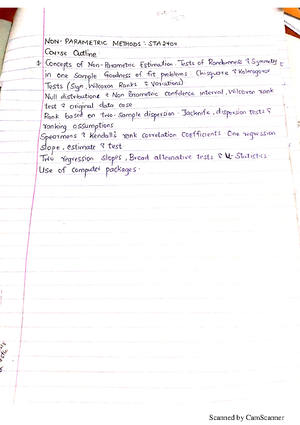 NON-PARAMETRIC METHODS: STA 2401
Course Outline
Concepts of Non-Parametric Estimation Tests of Randomness & Symmetry
in one Sample Goodness of fit problems. Chisquare & Kolmogorov
Tests (Sign, Wilcoxon Ranks & Variations)
Null distributions & Non Parametric confidence interval, Wilcoxon rank
test & original data case
Rank based on two-sample dispersion - Jacknife, dispersion tests &
ranking assumptions
Spearmans & Kendall's rank correlation coefficients One regression
slope, estimate & test
Two regression slopes, Broad alternative tests & U-Statistics.
Use of computer packages.
Scanned by CamScanner